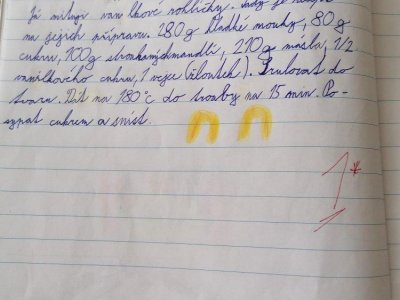 Já miluji vanilkové rohlíčky.
na jejich přípravu. 280g hladké mouky, 80g
cukru, 100g strouhanýchmandlí, 210g másla, 1/2
vanilkového cukru, 1 vejce (žloutek). Srulovat do
tvaru. Dát na 180°C do trouby na 15 min. Po-
sypat cukrem a sníst.
1*